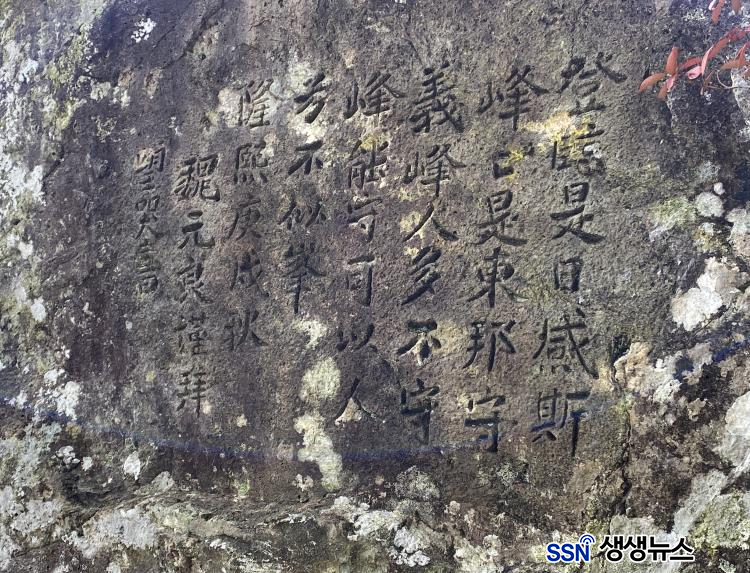 登臨是日感斯
峰已是東邦守
義峰人多不守
峰能守可以人
兮不似峯
隆熙庚戌秋
魏元良謹拜
書
SSN 생생뉴스